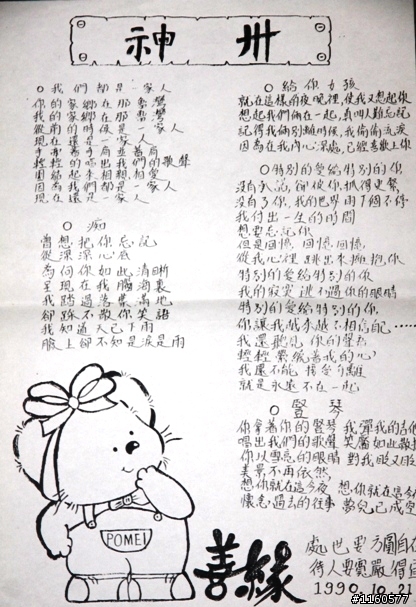 神州
○我們都是一家人
你的家鄉在那魯灣
我的家鄉在那魯灣
從前的時候是一家人
現在還是一家人
手牽著手肩並著肩
輕輕的唱出我們的歌聲
團結起來相親相愛
因為我們都是一家人
現在還是一家人
○痴
曾想把你忘記
從深深心底
為何你如此清晰
呈現在我腦海裏
我踏過落葉滿地
卻踩不散你笑語
我知道天已下雨
臉上卻不知是淚是雨
○給你女孩
就在這樣的夜晚裡，使我又想起你
想起我們倆在一起，真叫人難忘記
記得我倆別離時候，我偷偷流淚
因為在我內心深處，已經喜歡上你
○特別的愛給特別的你
沒有承諾，卻被你抓得更緊
沒有了你，我的世界雨下個不停
我付出一生的時間
想要忘記你
但是回憶，回憶，回憶
從我心裡跳出來擁抱你
特別的愛給特別的你
我的寂寞逃不過你的眼睛
特別的愛給特別的你
你讓我越來越不相信自己……
我還聽見你的聲音
輕輕縈繞著我的心
我還不能接受分離
就是永遠不在一起
○豎琴
你拿著你的豎琴 我彈我的吉他
唱出我們的歌聲 笑靨如此
你以雪亮的眼睛 對我眨又眨
美景不再依然
想你就在這今夜 想你就在這今
懷念過去的往事 已成空
POMEI
善緣
處世要方圓自在
待人要寬嚴得宜
1990.10.21
#1160577